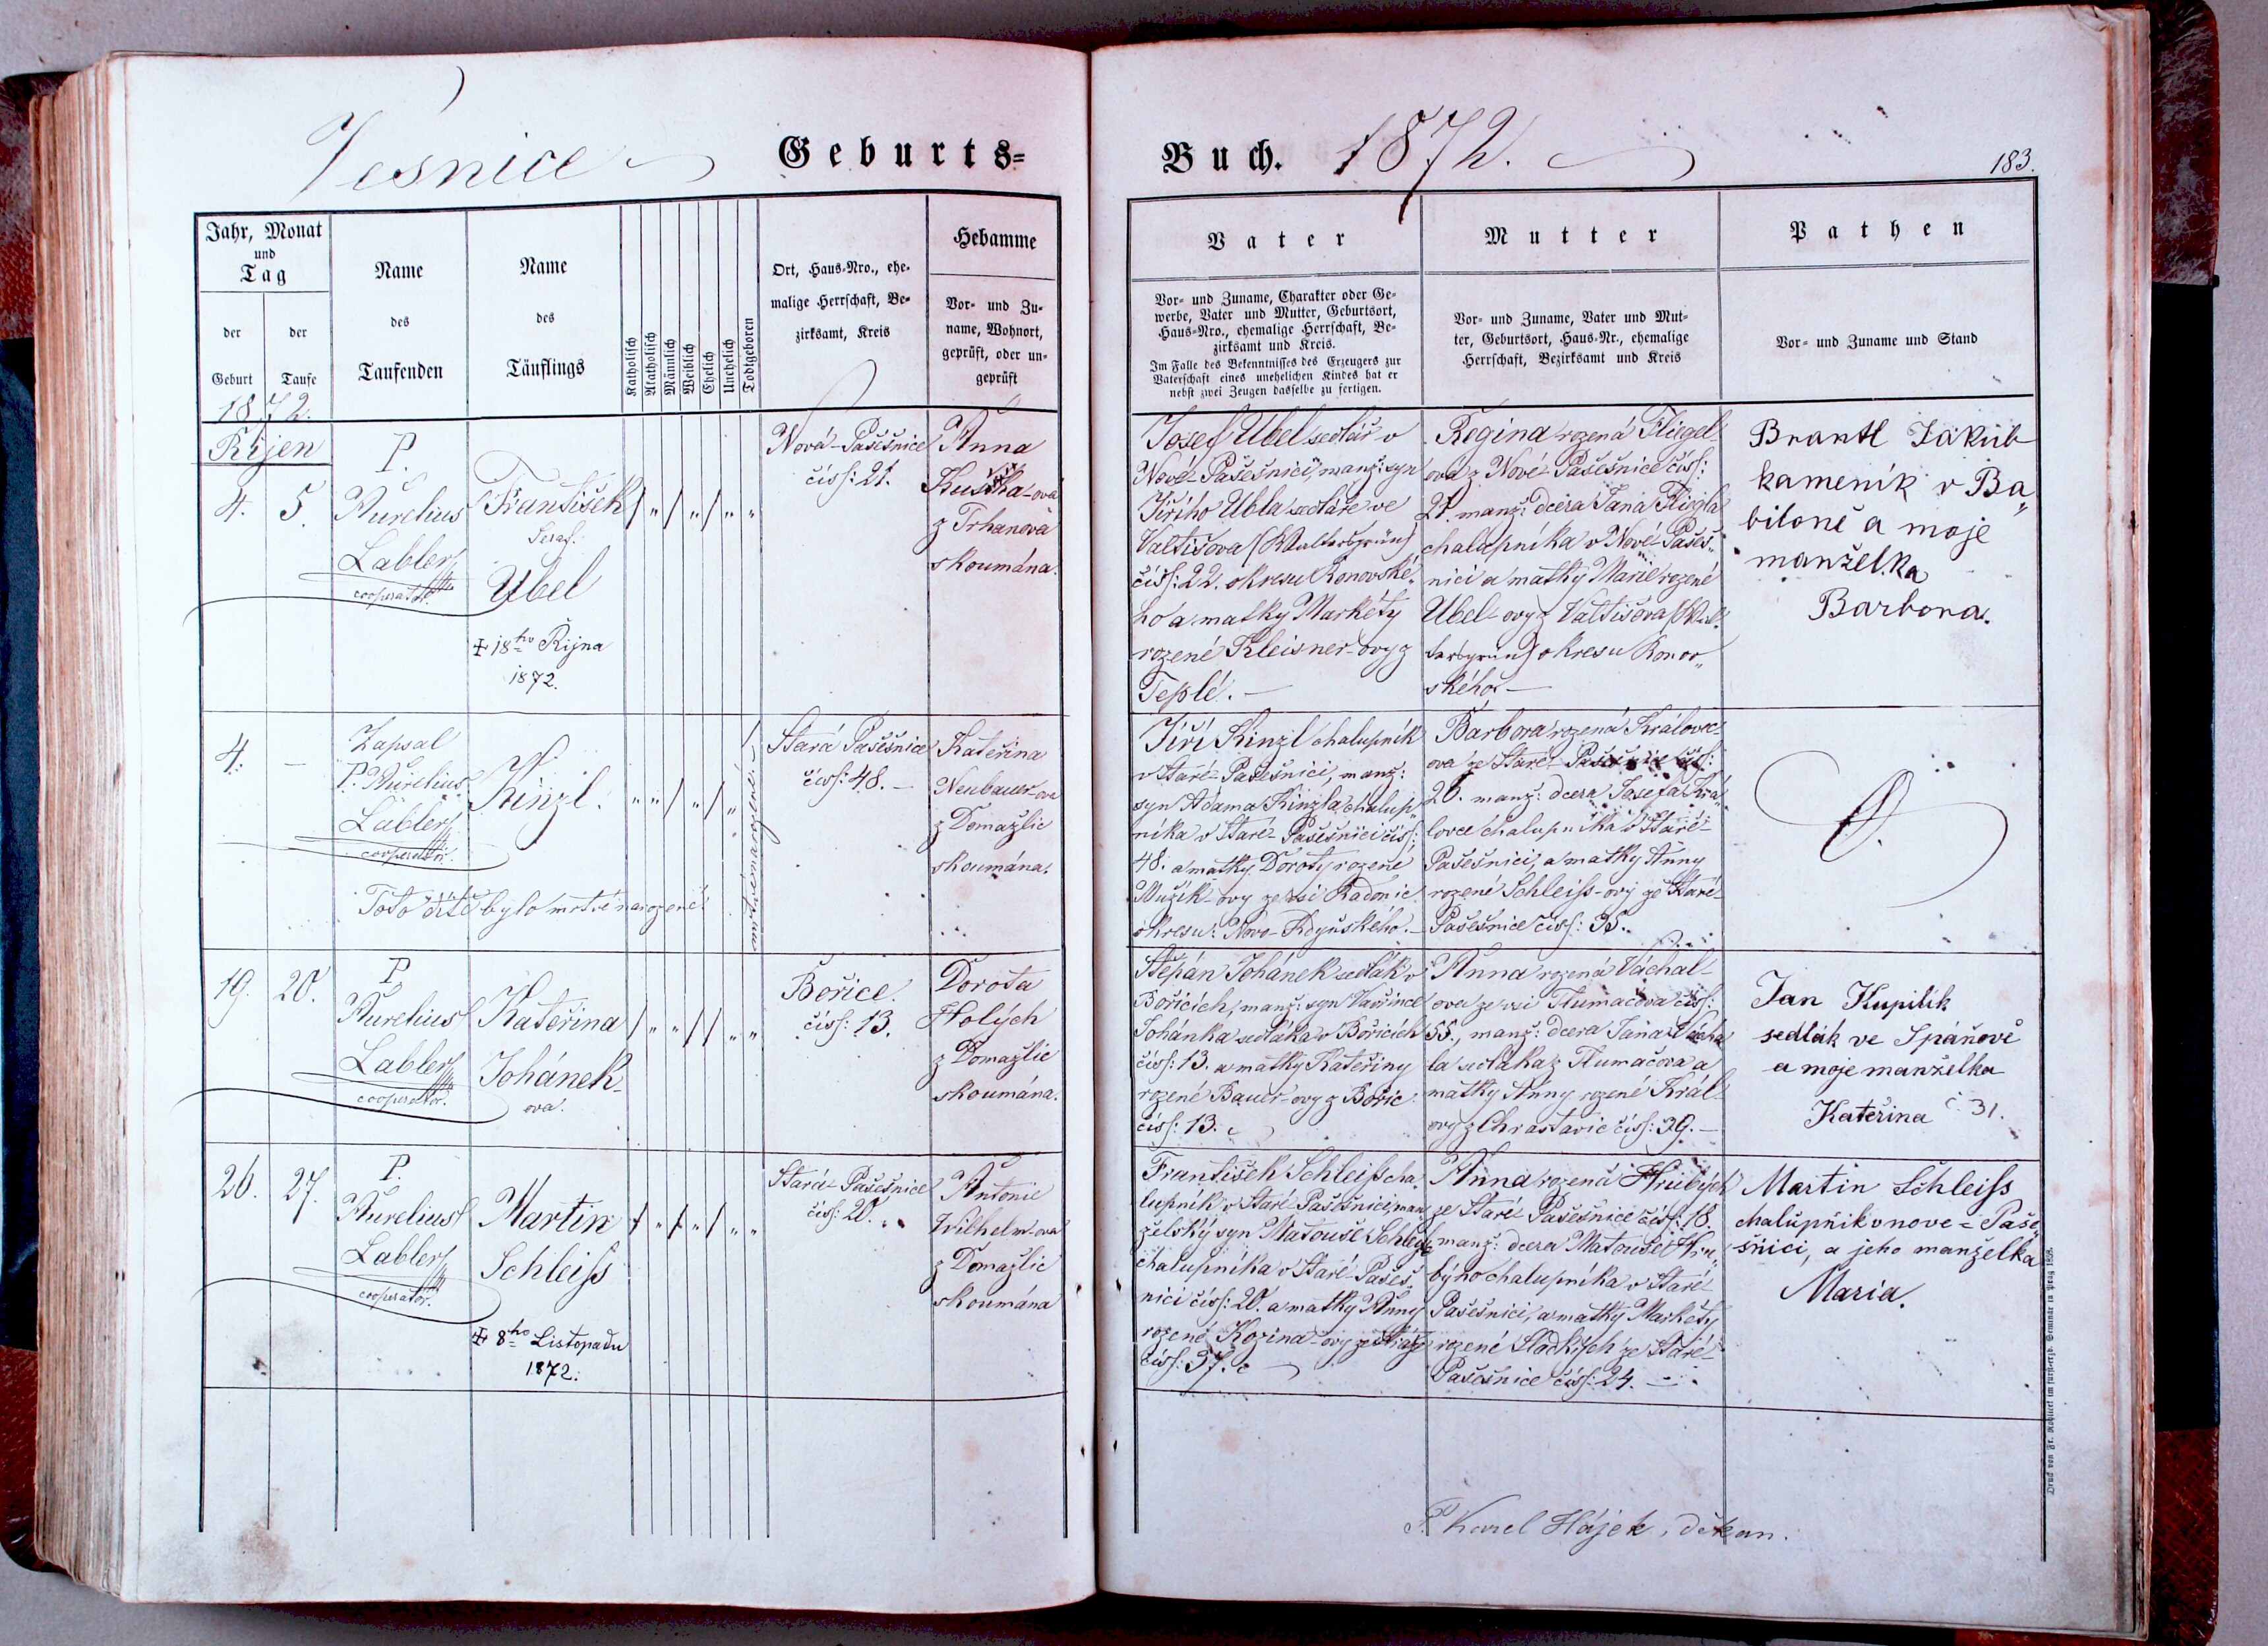 Vesnice
Geburts=
Jahr, Monat
und
Tag
der
Geburt
der
Taufe
Name
des
Taufenden
Name
des
Täuflings
Katholisch
Akatholisch
Männlich
Weiblich
Ehelich
Unehelich
Todtgeboren
Ort, Haus-Nro., ehe-
malige Herrschaft, Be-
zirksamt, Kreis
Hebamme
Vor- und Zu-
name, Wohnort,
geprüft, oder un-
geprüft
1872.
Říjen
4. 5.
P.
Aurelius
Labler
cooperator.
František
Seraf.
Übel
‡ 18ho Října
1872.
Nová-Pašešnice
čísl: 21.
Anna
-ova
z Trhanova
skoumána.
4. —
Zapsal
P. Aurelius
Labler
cooperator.
Kinzl.
Toto dítě bylo mrtvé narozené.
Stará Pašešnice
čísl: 48. —
Kateřina
Neubauer-ova
z Domažlic
skoumána.
19. 20.
P.
Aurelius
Labler
cooperator.
Kateřina
Johánek-
ova.
Bořice.
čísl: 13.
Dorota
Holých
z Domažlic
skoumána.
26. 27.
P.
Aurelius
Labler
cooperator.
Martin
Schleiſs
‡ 8ho Listopadu
1872.
Stará Pašešnice
čísl: 20.
Antonie
Wilhelm-ova
z Domažlic
skoumána
Buch. 1872.
183.
Vater
Vor- und Zuname, Charakter oder Ge-
werbe, Vater und Mutter, Geburtsort,
Haus-Nro., ehemalige Herrschaft, Be-
zirksamt und Kreis.
Im Falle des Bekenntnisses des Erzeugers zur
Vaterschaft eines unehelichen Kindes hat er
nebst zwei Zeugen dasselbe zu fertigen.
Mutter
Vor- und Zuname, Vater und Mut-
ter, Geburtsort, Haus-Nr., ehemalige
Herrschaft, Bezirksamt und Kreis
Pathen
Vor- und Zuname und Stand
Josef Übel sedlář v
Nové-Pašešnici, manž: syn
Jiřího Übla sedláře ve
Valtišova (Waltersgrün)
čísl: 22. okresu Ronovské-
ho a matky Markéty
rozené Kleisner-ovy z
Teplé. —
Regina rozená Fliegel-
ova z Nové-Pašešnice čísl:
21. manž: dcera Jana Fliegla
chalupníka v Nové-Pašeš„
nici a matky Marie rozené
Übel-ovy z Valtišova (Wal-
tersgrün) okresu Ronov„
ského. —
Brantl Jakub
kameník v Ba„
biloně a moje
manželka
Barbora.
Jiří Kinzl chalupník
v Staré-Pašešnici, manž:
syn Adama Kinzla chalup„
níka v Staré-Pašešnici čísl:
48. a matky Doroty rozené
Mužík-ovy ze vsi Radonic
okresu: Novo-Kdyňského. —
Barbora rozená Královec-
ova ze Staré-Pašešnice čísl:
26. manž: dcera Josefa Krá„
lovce chalupníka v Staré-
Pašešnici, a matky Anny
rozené Schleiſs-ovy ze Staré-
Pašešnice čísl: 35.
Štěpán Johánek sedlák v
Bořicích, manž: syn Vavřince
Johánka sedláka v Bořicích
čísl: 13. a matky Kateřiny
rozené Bauer-ovy z Bořic
čísl: 13.
Anna rozená Váchal-
ova ze vsi Tlumačova čísl:
55., manž: dcera Jana Vácha
la sedláka z Tlumačova a
matky Anny rozené Král-
ovy z Chrastavic čísl: 39. —
Jan Kupilík
sedlák ve Spáňově
a moje manželka
Kateřina č. 31.
František Schleiſs cha„
lupník v Staré Pašešnici, man„
želský syn Matouše Schleiſs
chalupníka v Staré-Pašeš„
nici čísl: 20. a matky Anny
rozené Kozina-ovy ze Stráže
čísl: 37.
Anna rozená Hrubých
ze Staré Pašešnice čísl: 18.
manž: dcera Matouše Hru„
býho chalupníka v Staré-
Pašešnici, a matky Markéty
rozené Sladkých ze Staré-
Pašešnice čísl: 24. —
Martin Schleiſs
chalupník v nove-Paše„
šnici, a jeho manželka
Maria.
P. Karel Hájek, děkan.
Druck von Fr. Rohlicek im fürsterzb. Seminär in Prag 1858.